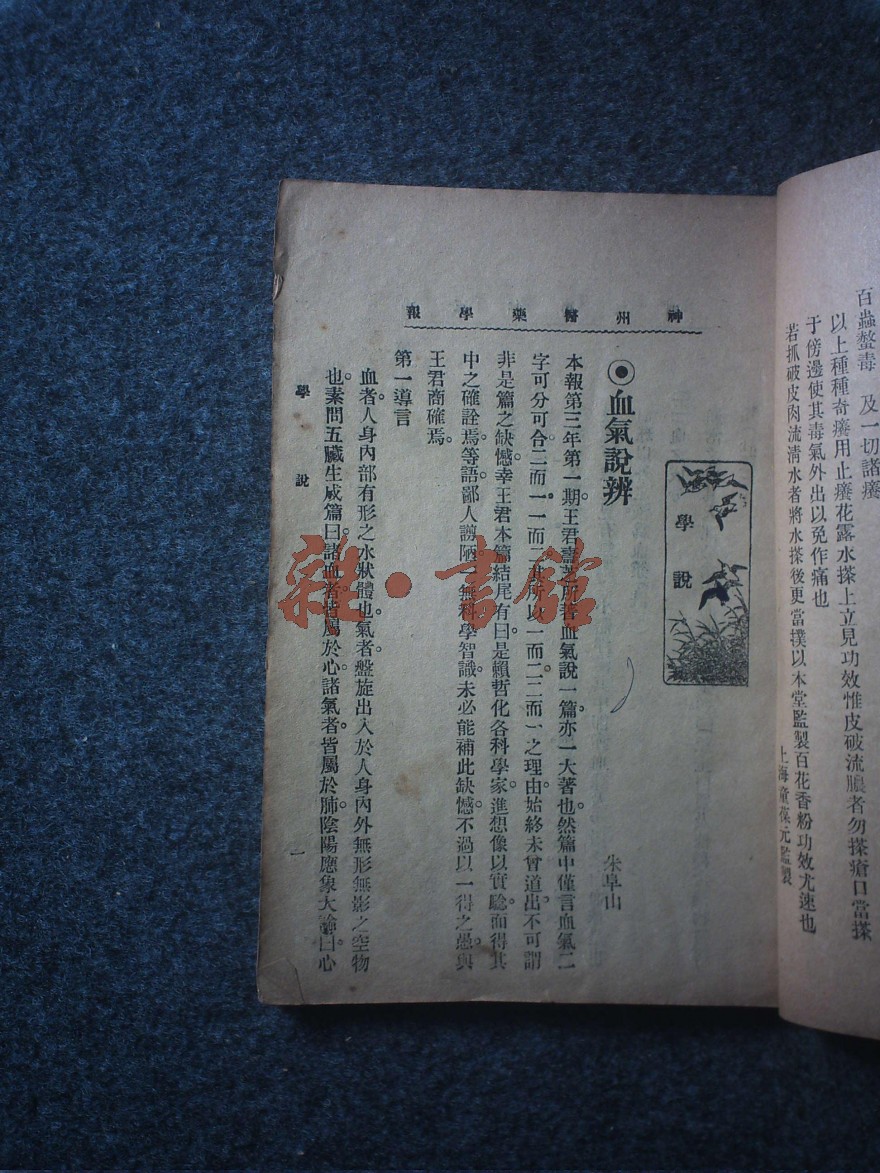 百蟲螫毒 及一切諸癢
以上種種奇癢用止癢花露水搽上立見功效惟皮破流膿者勿搽瘡口當搽
于傍邊使其毒氣外出以免作痛也
若抓破皮肉流清水者將水搽後更當撲以本堂監製百花香粉功效尤速也
上海童葆元監製
神州醫藥學報
學說
◉血氣說辨
朱阜山
本報第三年第一期王君壽芝所著血氣說一篇。亦一大著也。然篇中僅言血氣二
字可分可合二而一。一而二。其所以一而二二而一之理由。始終未曾道出不可謂
非是篇之缺憾。幸王君本篇結尾有曰是賴哲化各科學家。進想像以實驗。而得其
中之確詮焉。等語。鄙人譾陋。一無科學智識。未必能補此缺憾。不過以一得之愚。與
王君商確焉。
第一導言
血者。人身內部有形之水狀體也。氣者。盤旋出入於人身內外無形無影之空物
也。素問五臟生成篇曰。諸血者。皆屬於心。諸氣者。皆屬於肺。陰陽應象大論曰。心
學說
一
雜·書館